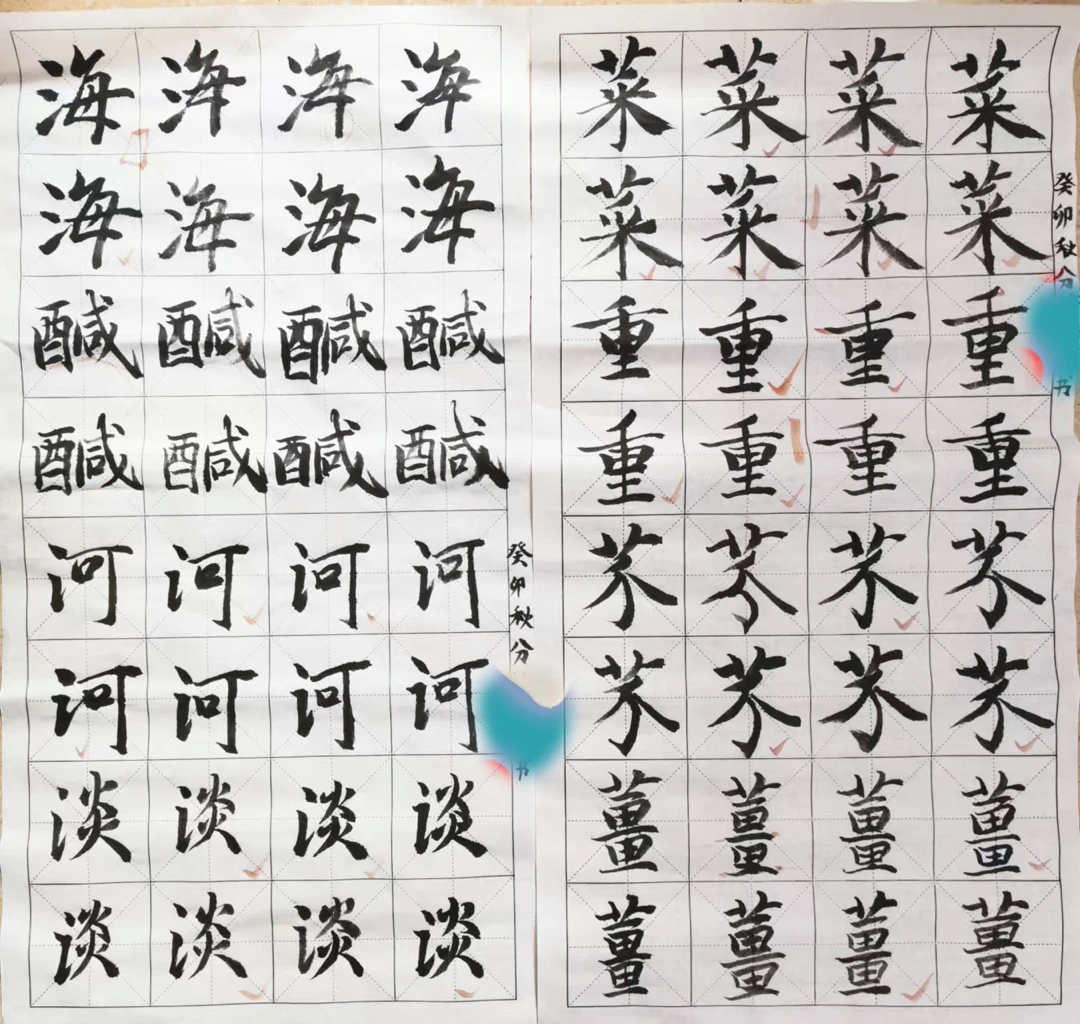 菜菜菜菜
菜菜菜菜
重重重重
重重重重
芥芥芥芥
芥芥芥芥
薑薑薑薑
薑薑薑薑
癸卯秋分 书
海海海海
海海海海
醎醎醎醎
醎醎醎醎
河河河河
河河河河
淡淡淡淡
淡淡淡淡
癸卯秋分 书